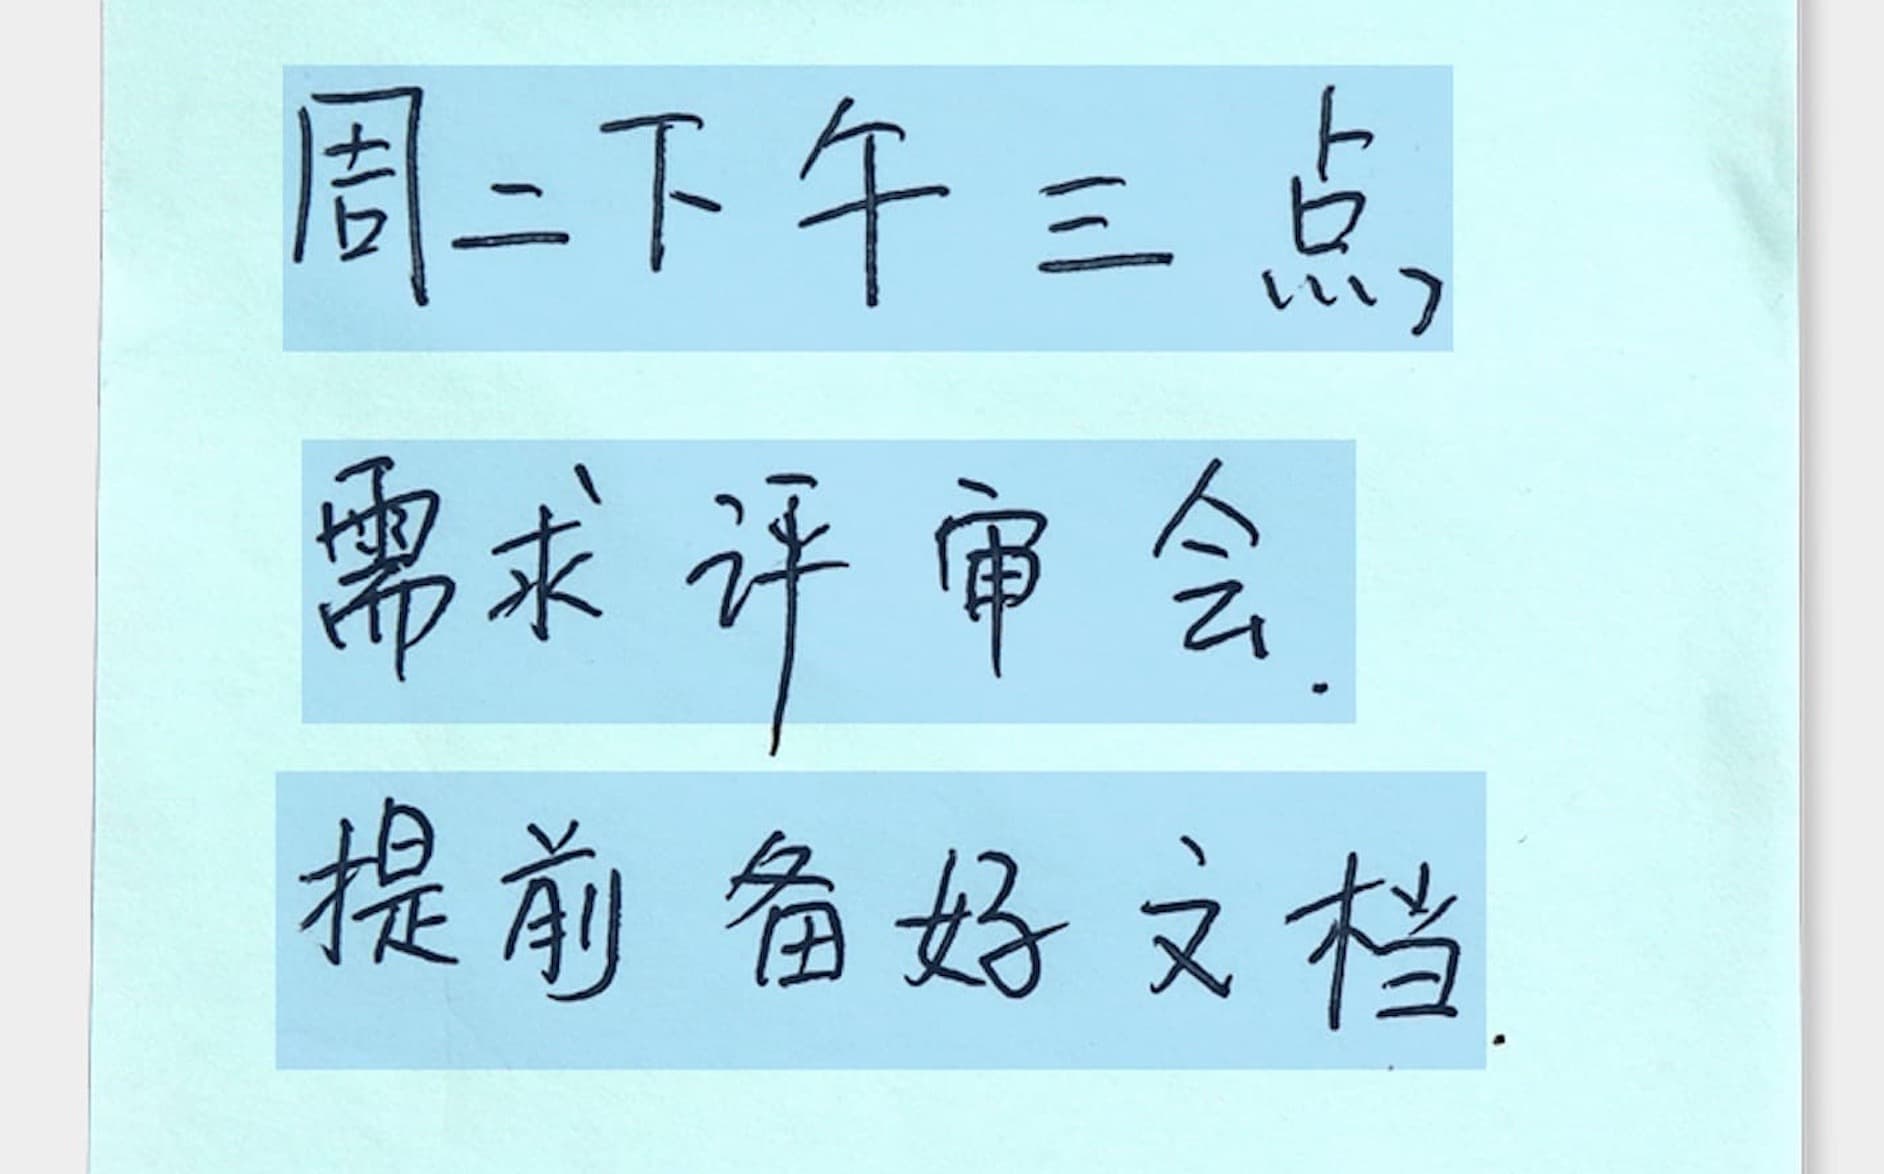 周二下午三点,
需求评审会.
提前备好文档.